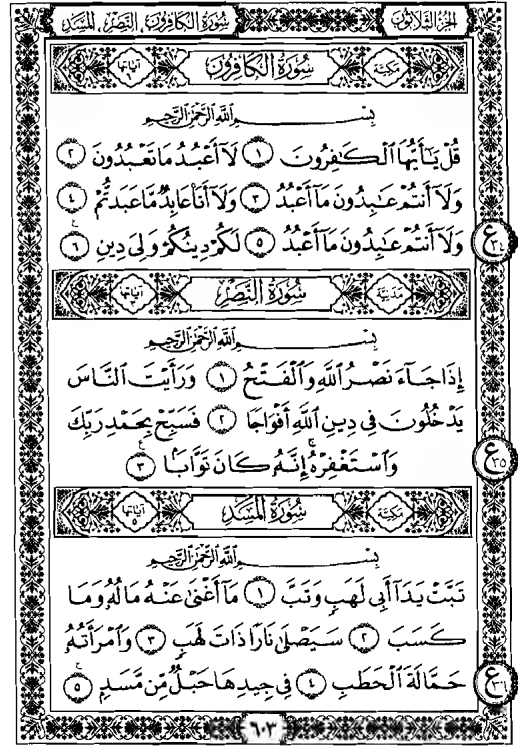 سُورَةُ الكَافِرُونَ، النَّصْرِ، المَسَدِ
الجُزْءُ الثَّلَاثُونَ
مَكِّيَّة سُورَةُ الكَافِرُونَ آيَاتُهَا
بِسْمِ اللَّهِ الرَّحْمَٰنِ الرَّحِيمِ
قُلْ يَٰٓأَيُّهَا ٱلْكَٰفِرُونَ ١ لَآ أَعْبُدُ مَا تَعْبُدُونَ ٢
وَلَآ أَنتُمْ عَٰبِدُونَ مَآ أَعْبُدُ ٣ وَلَآ أَنَا۠ عَابِدٌ مَّا عَبَدتُّمْ ٤
وَلَآ أَنتُمْ عَٰبِدُونَ مَآ أَعْبُدُ ٥ لَكُمْ دِينُكُمْ وَلِىَ دِينِ ٦
ع ٣٤
مَدَنِيَّة سُورَةُ النَّصْرِ آيَاتُهَا
بِسْمِ اللَّهِ الرَّحْمَٰنِ الرَّحِيمِ
إِذَا جَآءَ نَصْرُ ٱللَّهِ وَٱلْفَتْحُ ١ وَرَأَيْتَ ٱلنَّاسَ
يَدْخُلُونَ فِى دِينِ ٱللَّهِ أَفْوَاجًا ٢ فَسَبِّحْ بِحَمْدِ رَبِّكَ
وَٱسْتَغْفِرْهُ إِنَّهُۥ كَانَ تَوَّابًۢا ٣
ع ٣٥
مَكِّيَّة سُورَةُ المَسَدِ آيَاتُهَا ٥
بِسْمِ اللَّهِ الرَّحْمَٰنِ الرَّحِيمِ
تَبَّتْ يَدَآ أَبِى لَهَبٍ وَتَبَّ ١ مَآ أَغْنَىٰ عَنْهُ مَالُهُۥ وَمَا
كَسَبَ ٢ سَيَصْلَىٰ نَارًا ذَاتَ لَهَبٍ ٣ وَٱمْرَأَتُهُۥ
حَمَّالَةَ ٱلْحَطَبِ ٤ فِى جِيدِهَا حَبْلٌ مِّن مَّسَدٍۭ ٥
ع ٣٦
٦٠٣